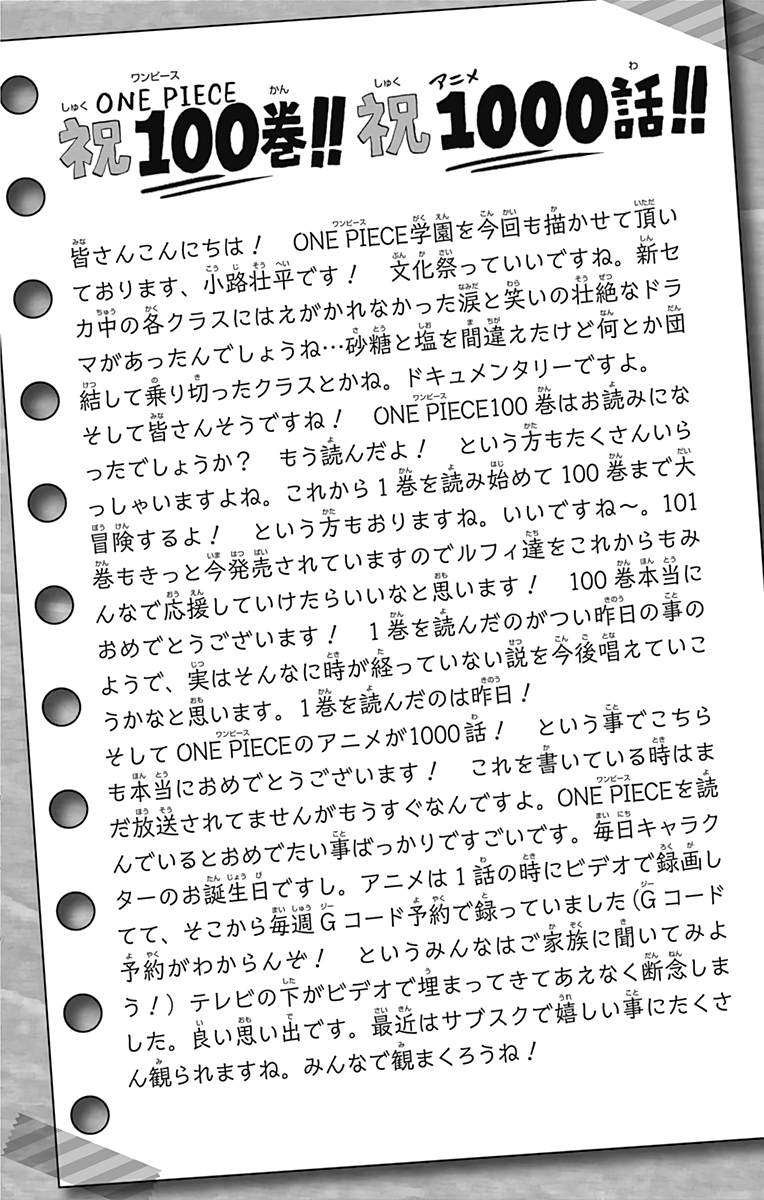 祝 ONE PIECE 100巻!! 祝 アニメ 1000話!!
皆さんこんにちは！　ONE PIECE学園を今回も描かせて頂い
ております、小路壮平です！　文化祭っていいですね。新セ
カ中の各クラスにはえがかれなかった涙と笑いの壮絶なドラ
マがあったんでしょうね…砂糖と塩を間違えたけど何とか団
結して乗り切ったクラスとかね。ドキュメンタリーですよ。
そして皆さんそうですね！　ONE PIECE100巻はお読みにな
ったでしょうか？　もう読んだよ！　という方もたくさんいら
っしゃいますよね。これから1巻を読み始めて100巻まで大
冒険するよ！　という方もおりますね。いいですね〜。101
巻もきっと今発売されていますのでルフィ達をこれからもみ
んなで応援していけたらいいなと思います！　100巻本当に
おめでとうございます！　1巻を読んだのがつい昨日の事の
ようで、実はそんなに時が経っていない説を今後唱えていこ
うかなと思います。1巻を読んだのは昨日！
そしてONE PIECEのアニメが1000話！　という事でこちら
も本当におめでとうございます！　これを書いている時はま
だ放送されてませんがもうすぐなんですよ。ONE PIECEを読
んでいるとおめでたい事ばっかりですごいです。毎日キャラク
ターのお誕生日ですし。アニメは1話の時にビデオで録画し
てて、そこから毎週Gコード予約で録っていました（Gコード
予約がわからんぞ！　というみんなはご家族に聞いてみよ
う！）テレビの下がビデオで埋まってきてあえなく断念しま
した。良い思い出です。最近はサブスクで嬉しい事にたくさ
ん観られますね。みんなで観まくろうね！